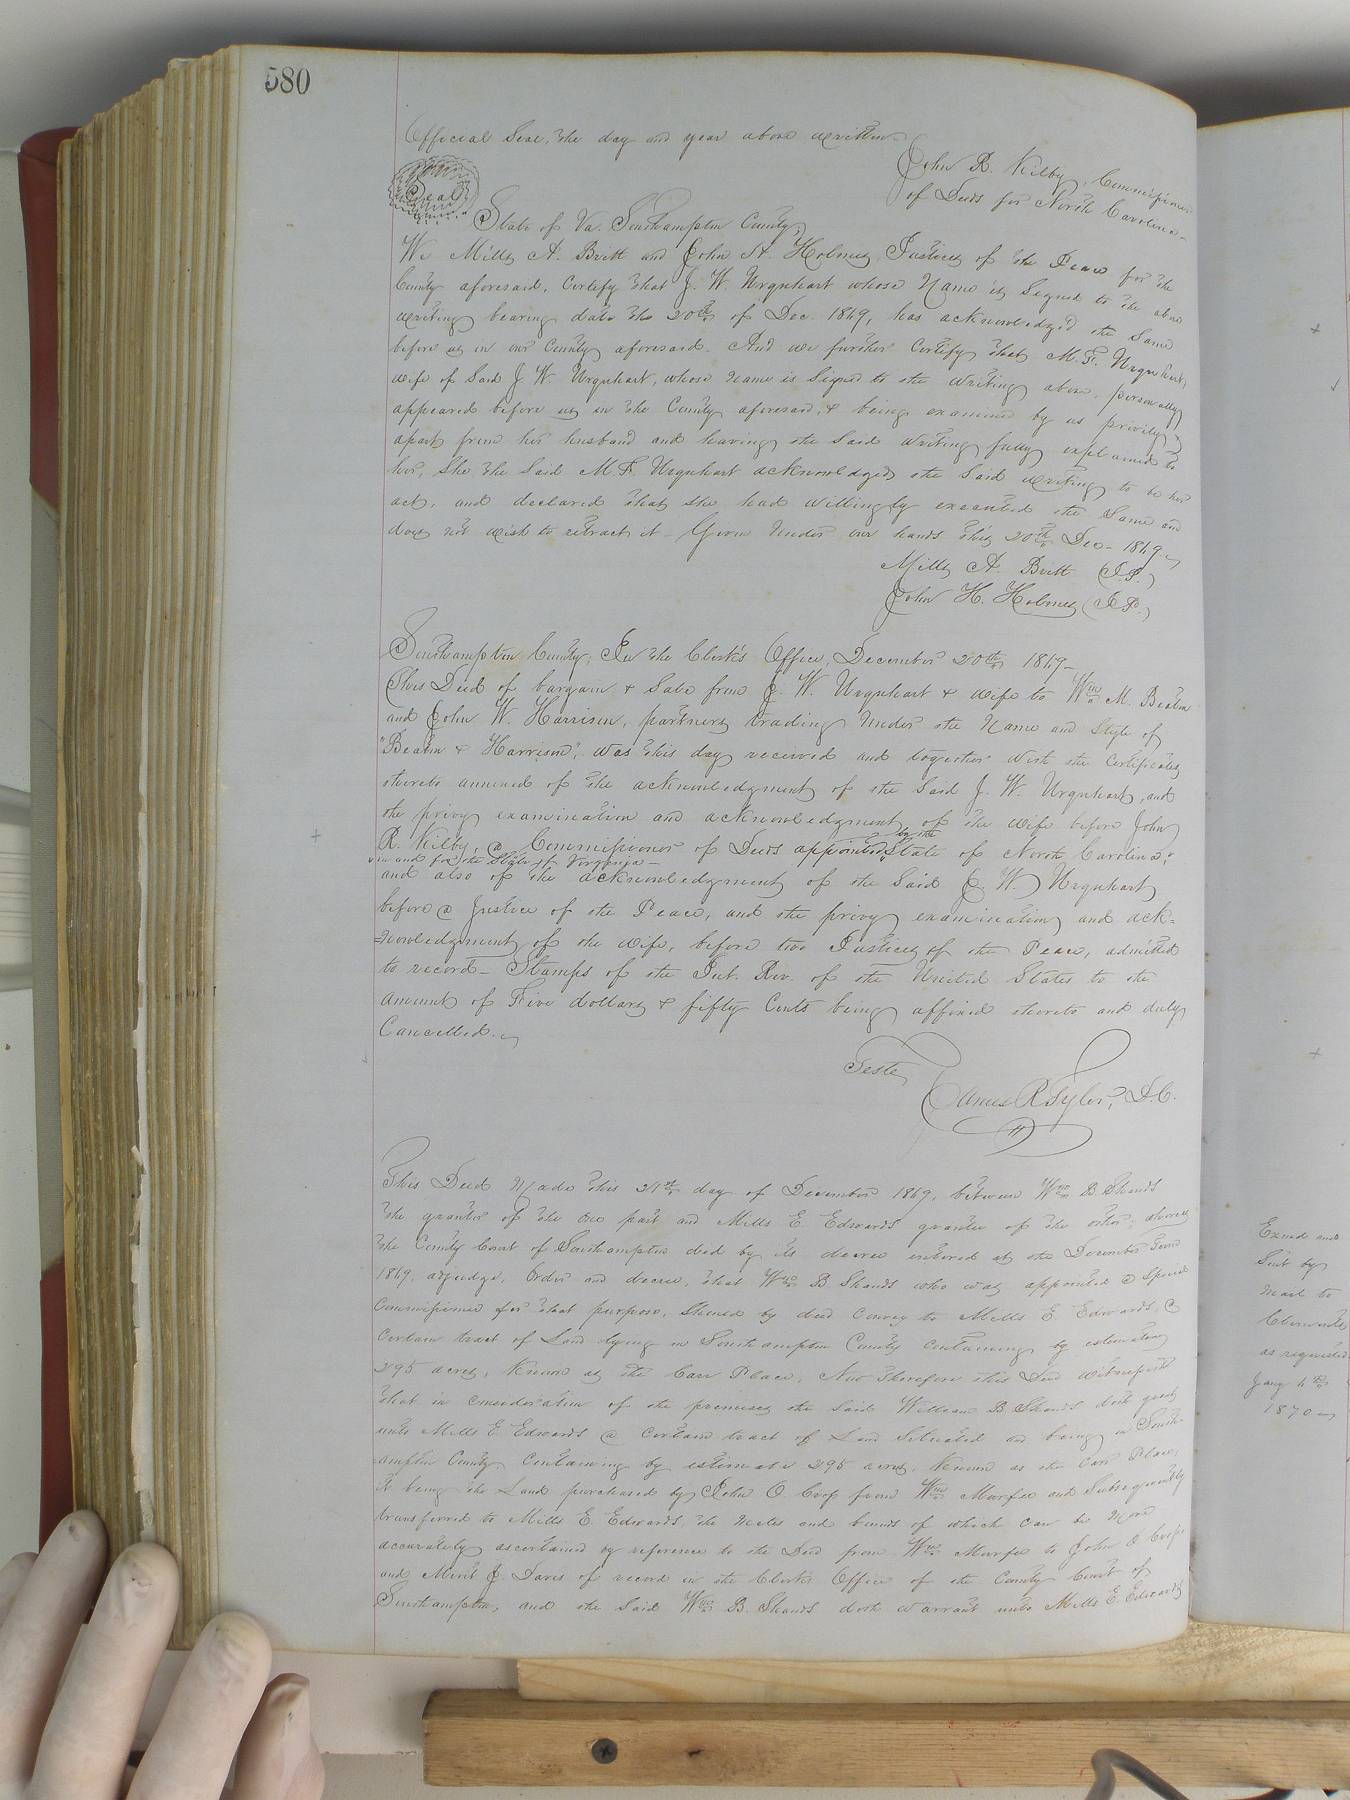 580
Official Seal, the day and year above written.
John R. Kilby, Commissioner
of Deeds for North Carolina-
Seal
State of Va. Southampton County,
We Mills A. Britt and John H. Holmes, Justices of the Peace for the
County aforesaid, Certify that J. W. Urquhart whose Name is Signed to the above
writing bearing date the 20th of Dec. 1869, has acknowledged the Same
before us in our County aforesaid. And we further Certify that M. F. Urquhart,
wife of Said J. W. Urquhart, whose name is Signed to the writing above, personally
appeared before us in the County aforesaid, & being examined by us privily &
apart from her husband and having the Said writing fully explained to
her, She the Said M. F. Urquhart acknowledged the Said writing to be her
act, and declared that she had willingly executed the Same and
does not wish to retract it - Given Under our hands this 20th Dec- 1869.
Mills A. Britt (J.P.)
John H. Holmes (J.P.)
Southampton County, In the Clerk's Office, December 20th 1869-
This Deed of bargain & Sale from J. W. Urquhart & wife to Wm M. Beaton
and John W. Harrison, partners trading Under the Name and Style of
"Beaton & Harrison", was this day received and together with the Certificates
thereto annexed of the acknowledgment of the Said J. W. Urquhart, and
the privy examination and acknowledgment of the wife before John
R. Kilby, a Commissioner of Deeds appointed by the State of North Carolina,
in and for the State of Virginia-
and also of the acknowledgment of the Said J. W. Urquhart
before a Justice of the Peace, and the privy examination and ack=
nowledgment of the wife, before two Justices of the Peace, admitted
to record- Stamps of the Int. Rev. of the United States to the
amount of Five dollars & fifty Cents being affixed thereto and duly
Cancelled.
Teste
James R Tyler, D.C.
This Deed Made this 21st day of December 1869, between Wm B. Shands
the grantor of the one part and Mills E. Edwards grantee of the other, whereas
the County Court of Southampton did by its decree entered at the December Term
1869, adjudge, Order and decree, that Wm B. Shands who was appointed a Special
Commissioner for that purpose, Should by deed Convey to Mills E. Edwards, a
Certain tract of Land lying in Southampton County Containing by estimation
295 acres, Known as the Carr Place, Now Therefore this Deed witnesseth
that in consideration of the premises the Said William B. Shands doth grant
unto Mills E. Edwards a Certain tract of Land Situated and being in South-
ampton County, Containing by estimate 295 acres, Known as the Carr Place,
it being the Land purchased by John O. Corp from Wm Murfee and Subsequently
transferred to Mills E. Edwards, the metes and bounds of which can be More
accurately ascertained by reference to the Deed from Wm Murfee to John O Corp
and Merit J. Davis of record in the Clerk's Office of the County Court of
Southampton, and the Said Wm B. Shands doth warrant unto Mills E. Edwards
Exmd and
Sent by
mail to
as requested
Jany 4th
1870